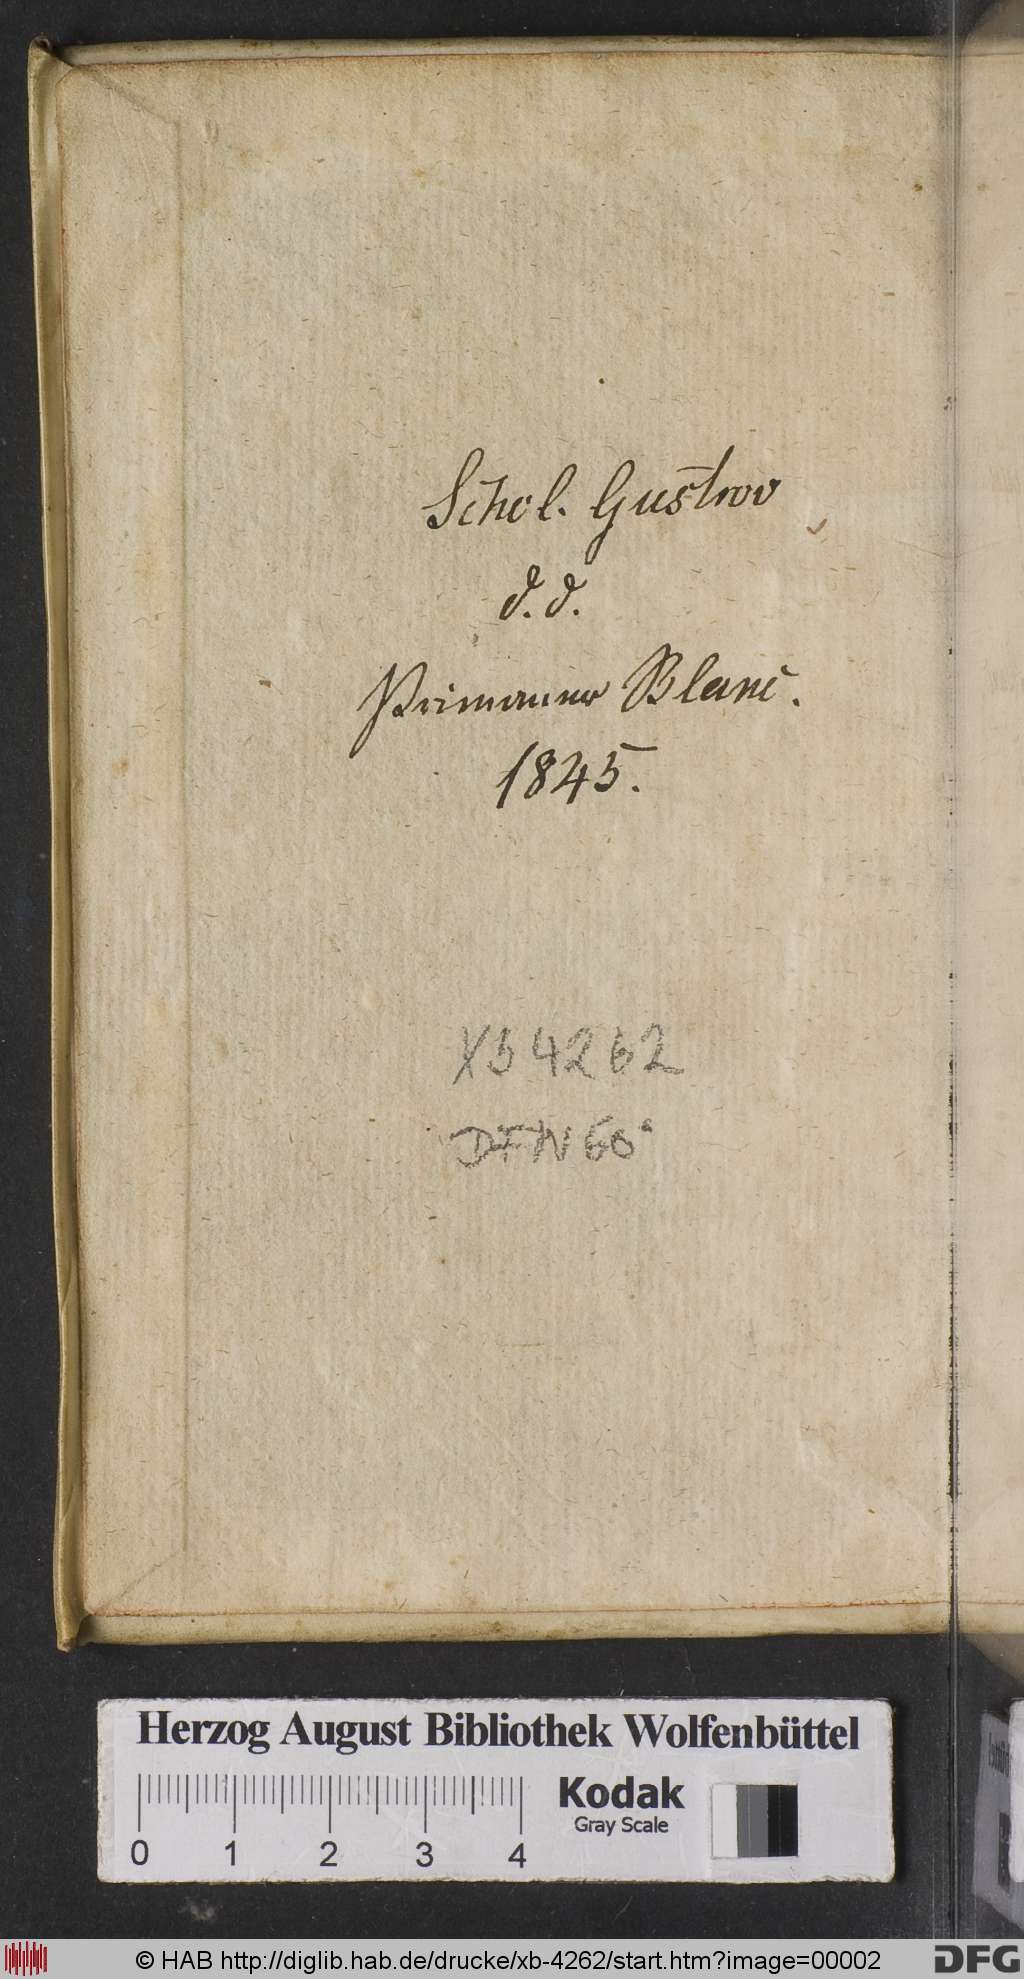 Schol. Gustrov
d. d.
Primaner Blanc.
1845.
Xb 4262
DFN 60
Herzog August Bibliothek Wolfenbüttel
0 1 2 3 4
Kodak
Gray Scale
© HAB http://diglib.hab.de/drucke/xb-4262/start.htm?image=00002
DFG